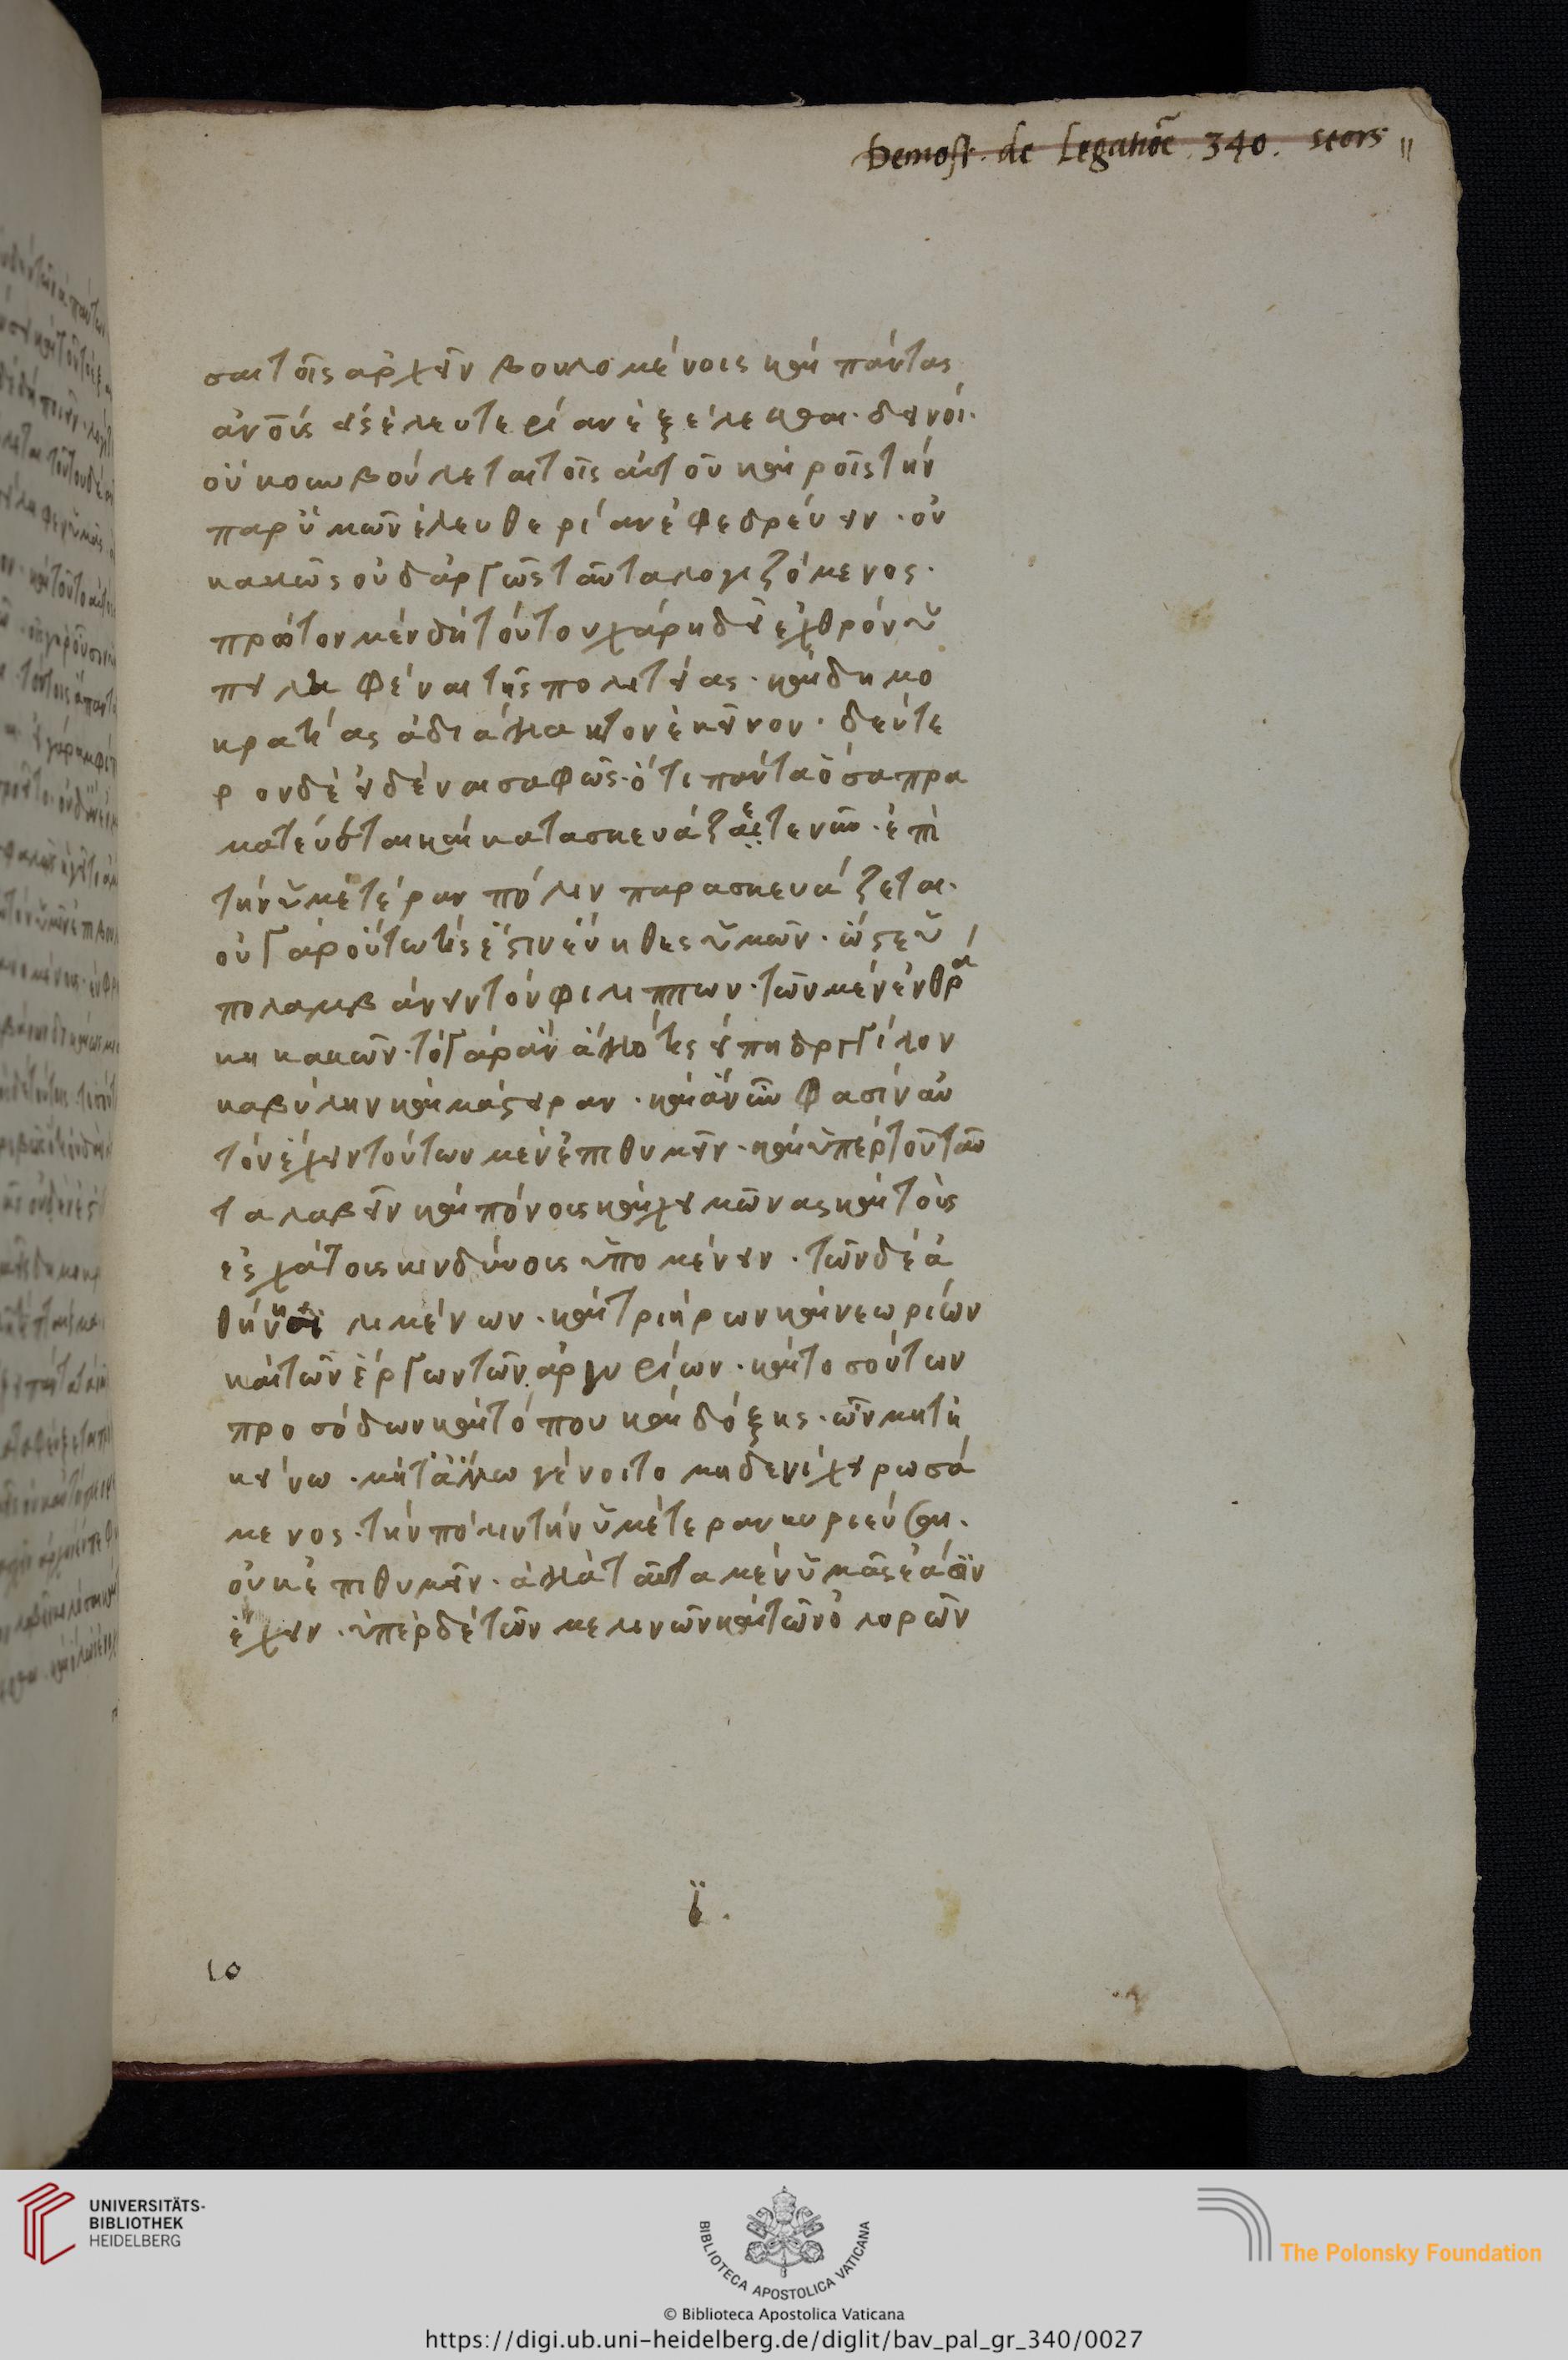 Demost. de Legatiōe 340. seors
σαι τοῖς αρχεῖν βουλομένοις καὶ πάντας
ἀνοῖς εἰς ἐλευτερίαν ἐξελέσθαι. δεινοί.
οὐκουν βούλεται τοῖς ἀυτοῦ καιροῖς τὴν
παρ ὑμῶν ἐλευθερίαν ἐφεδρεύειν. οὐ
κακῶς οὐδ ἀργῶς ταῦτα λογιζόμενος.
πρῶτον μὲν δὴ τούτον χάρη δεῖ ἐχθρόν ὑ
πειληφέναι τῆς πολιτείας. καὶ δημο
κρατίας ἀδιάλλακτον ἐκεῖνον. δεύτε
ρον δὲ εἰδέναι σαφῶς. ὅτι πάντα ὅσα πρα
ματεύεται καὶ κατασκευάζεται νῦν. ἐπὶ
τὴν ὑμετέραν πόλιν παρασκευάζεται.
οὐ γὰρ οὕτω τίς ἔστιν ἐυήθης ὑμῶν. ὥστε ὑ
πολαμβάνειν τὸν φιλίππων. τῶν μὲν ἐν θρά
κη κακῶν. τὸ γὰρ ἂν ἄλλο τις είπη δργγίλον
καβύλην καὶ μάστειραν. καὶ ἂν νῦν φασὶν αὐ
τὸν ἔχειν τούτων μὲν ἐπιθυμεῖν. καὶ ὑπὲρ τοῦ ταῦ
τα λαβεῖν καὶ πόνοις καὶ χειμῶνας καὶ τοὶς
εσχάτοις κινδύνοις ὑπομένειν. τῶν δὲ ἀ
θήνησι λιμένων. καὶ τριήρων καὶ νεωρίων
καὶ τῶν ἔργων τῶν ἀργυρίων. καὶ τοσούτων
προσόδων καὶ τόπου καὶ δόξης. ὧν μητὴ
κείνω. μήτ ἄλλω γένοιτο μηδενὶ χειρωσά
μενος. τὴν πόλιν τὴν ὑμέτεραν κυριεύσαι.
οὐκ ἐπιθυμεῖν. ἀλλὰ ταῦτα μὲν ὑμᾶς ἐάσειν
ἔχειν. ὑπὲρ δὲ τῶν μελινῶν καὶ τῶν ὀλυρῶν
ϊ.
10
UNIVERSITÄTS-
BIBLIOTHEK
HEIDELBERG
BIBLIOTECA APOSTOLICA VATICANA
The Polonsky Foundation
© Biblioteca Apostolica Vaticana
https://digi.ub.uni-heidelberg.de/diglit/bav_pal_gr_340/0027